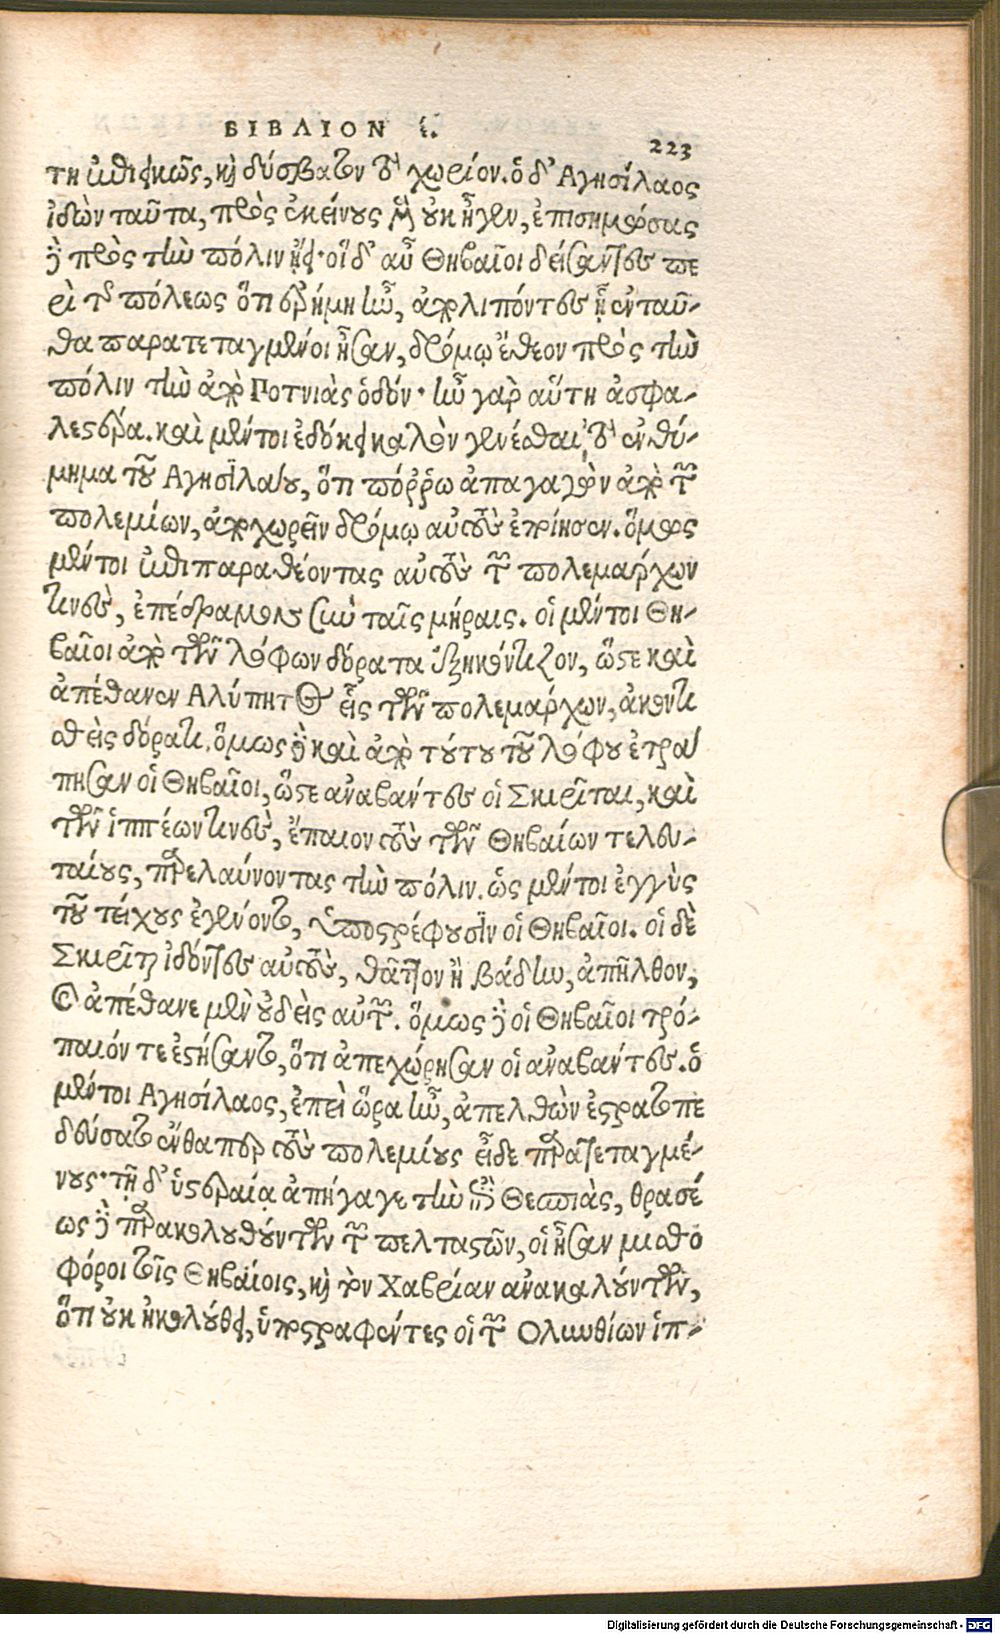 ΒΙΒΛΙΟΝ έ.
223
τη ἐπιεικῶς, καὶ δύσβατον τὸ χωρίον. ὁ δ' Αγησίλαος
ἰδὼν ταῦτα, πρὸς ἐκείνους μὲν οὐκ ἦγεν, ἐπισιμώσας
δὲ πρὸς τὴν πόλιν ᾔει· οἵ δ' αὖ Θηβαῖοι δείσαντες πε
ρὶ τῆς πόλεως ὅτι ἐρήμη ἦν, ἀπολιπόντες ᾗ ἐνταῦ-
θα παρατεταγμένοι ἦσαν, δρόμῳ ἔθεον πρὸς τὴν
πόλιν τὴν ἀπὸ Ποτνιὰς ὁδόν· ἦν γὰρ αὕτη ἀσφα-
λεστέρα. καὶ μέντοι ἐδόκει καλὸν γενέσθαι, τὸ ἐνθύ-
μημα τοῦ Αγησιλάου, ὅτι πόῤῥω ἀπαγαγὼν ἀπὸ τῶν
πολεμίων, ἀποχωρεῖν δρόμῳ αὐτοὺς ἐποίησεν. ὅμως
μέντοι ἐπιπαραθέοντας αὐτοὺς τῶν πολεμαρχων
τινὲς, ἐπέδραμον σὺν ταῖς μόραις. οἱ μέντοι Θη-
βαῖοι ἀπὸ τῶν λόφων δόρατα ἐξηκόντιζον, ὥστε καὶ
ἀπέθανεν Αλύπητος εἷς τῶν πολεμάρχων, ἀκοντι
σθεὶς δόρατι. ὅμως δὲ καὶ ἀπὸ τούτου τοῦ λόφου ἐτρά
πησαν οἱ Θηβαῖοι, ὥστε ἀναβάντες οἱ Σκιρῖται, καὶ
τῶν ἱππέων τινὲς, ἔπαιον τοὺς τῶν Θηβαίων τελευ-
ταίους, παρελαύνοντας τὴν πόλιν. ὡς μέντοι ἐγγὺς
τοῦ τείχους ἐγένοντο, ὑποστρέφουσιν οἱ Θηβαῖοι. οἱ δὲ
Σκιρῖται ἰδόντες αὐτοὺς, θᾶττον ἢ βάδην, ἀπῆλθον,
Καὶ ἀπέθανε μὲν οὐδεὶς αὐτῶν. ὅμως δὲ οἱ Θηβαῖοι τρό-
παιόν τε ἐστήσαντο, ὅτι ἀπεχώρησαν οἱ ἀναβάντες. ὁ
μέντοι Αγησίλαος, ἐπεὶ ὥρα ἦν, ἀπελθὼν ἐστρατοπε
δεύσατο ἔνθαπερ τοὺς πολεμίους εἶδε παρατεταγμέ-
νους· τῇ δ' ὑστεραίᾳ ἀπήγαγε τὴν ἐπὶ Θεσπιὰς, θρασέ
ως δὲ παρακολουθούντων τῶν πελταστῶν, οἱ ἦσαν μισθο
φόροι τοῖς Θηβαίοις, καὶ τὸν Χαβρίαν ἀνακαλούντων,
ὅτι οὐκ ἠκολούθει, ὑποστραφέντες οἱ τῶν Ολυνθίων ἱπ-
Digitalisierung gefördert durch die Deutsche Forschungsgemeinschaft - DFG